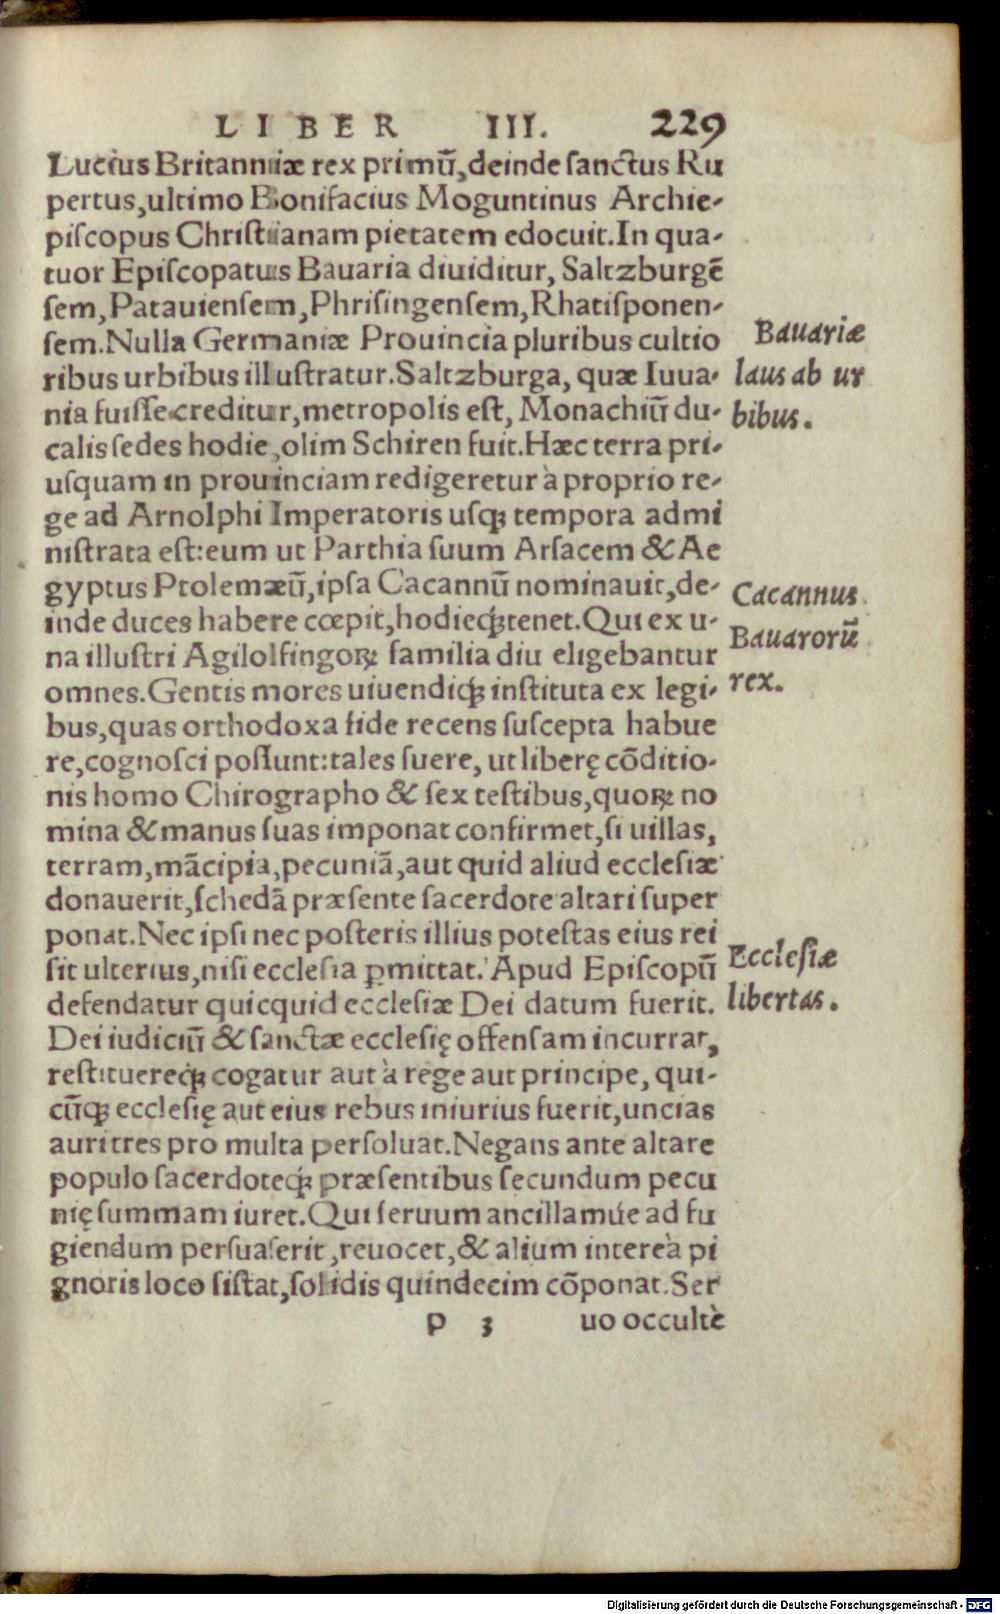 LIBER III. 229
Lucius Britanniæ rex primũ, deinde ſanctus Ru
pertus, ultimo Bonifacius Moguntinus Archie-
piſcopus Chriſtianam pietatem edocuit. In qua-
tuor Epiſcopatus Bauaria diuiditur, Saltzburgẽ
ſem, Patauienſem, Phriſingenſem, Rhatiſponen-
ſem. Nulla Germaniæ Prouincia pluribus cultio
ribus urbibus illuſtratur. Saltzburga, quæ Iuua-
nia fuiſſe creditur, metropolis eſt, Monachiũ du-
calis ſedes hodie, olim Schiren fuit. Hæc terra pri-
uſquam in prouinciam redigeretur à proprio re-
ge ad Arnolphi Imperatoris uſqꝫ tempora admi
niſtrata eſt: eum ut Parthia ſuum Arſacem & Ae
gyptus Ptolemæũ, ipſa Cacannũ nominauit, de-
inde duces habere cœpit, hodieqꝫ tenet. Qui ex u-
na illuſtri Agilolfingoꝝ familia diu eligebantur
omnes. Gentis mores uiuendiqꝫ inſtituta ex legi-
bus, quas orthodoxa fide recens ſuſcepta habue
re, cognoſci poſſunt: tales fuere, ut liberę cõditio-
nis homo Chirographo & ſex teſtibus, quoꝝ no
mina & manus ſuas imponat confirmet, ſi uillas,
terram, mãcipia, pecuniã, aut quid aliud eccleſiæ
donauerit, ſchedã præſente ſacerdote altari ſuper
ponat. Nec ipſi nec poſteris illius poteſtas eius rei
ſit ulterius, niſi eccleſia ꝑmittat. Apud Epiſcopũ
defendatur quicquid eccleſiæ Dei datum fuerit.
Dei iudiciũ & ſanctæ eccleſię offenſam incurrat,
reſtituereqꝫ cogatur aut à rege aut principe, qui-
cũqꝫ eccleſię aut eius rebus iniurius fuerit, uncias
auri tres pro multa perſoluat. Negans ante altare
populo ſacerdoteqꝫ præſentibus ſecundum pecu
nię ſummam iuret. Qui ſeruum ancillamúe ad fu
giendum perſuaſerit, reuocet, & alium intereà pi
gnoris loco ſiſtat, ſolidis quindecim cõponat. Ser
p 3 uo occultè
Bauariæ
laus ab ur
bibus.
Cacannus
Bauarorũ
rex.
Eccleſiæ
libertas.
Digitalisierung gefördert durch die Deutsche Forschungsgemeinschaft - DFG